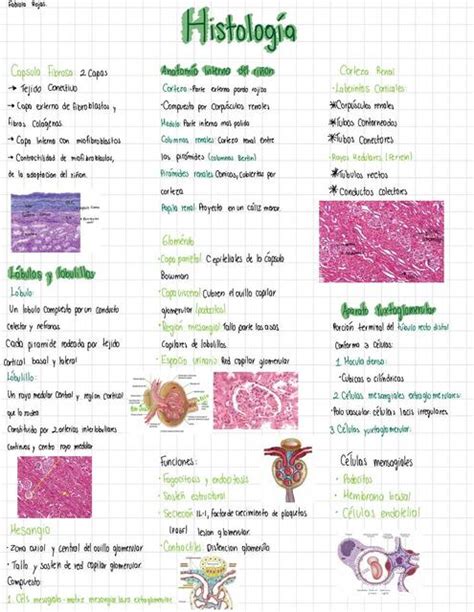 Fabiola Rojas.
Histología
Capsula Fibrosa 2 Capas
→ Tejido Conectivo
→ Capa externa de fibroblastos y
fibras Colágenas.
→ Capa Interna con miofibroblastos
→ Contractilidad de miofibroblastos,
de la adaptación del riñon.
Lóbulos y lobulillos
Lóbulo:
Un lóbulo Compuesto por un conducto
colector y nefronas.
Cada piramide rodeada por tejido
cortical basal y lateral
Lobulillo:
Un rayo medular Central y region cortical
que lo rodea
Constituido por 2 arterias interlobulillares
continuas y centro rayo medular
Mesangio
• Zona axial y central del ovillo glomerular
• Tallo y sosten de red capilar glomerular.
Compuesto:
1. Céls mesangiales - matriz mesangial
Anatomía interna del riñon
Corteza - Parte externa pardo rojiza
• Compuesto por Corpúsculos renales
Medula: Parte interna mas palida
Columnas renales: Corteza renal entre
las pirámides (columnas Bertin)
Pirámides renales: Conicas, Cubiertas por
corteza
Papila renal: Proyecto en un cáliz menor.
Glomérulo
• Capa parietal: Cepiteliales de la cápsula
Bowman
• Capa visceral: Cubren el ovillo capilar
glomerular (podocitos)
• Region mesangial: Tallo porta los asas
Capilares de lobulillos.
• Espacio urinario: Red capilar glomerular.
Funciones:
• Fagocitosis y endocitosis
• Sostén estructural
• Secreción: IL-1, factor de crecimiento de plaquetas
lesion glomerular.
• Contractiles: Distencion glomerular
Corteza Renal
• Laberintos Corticales
*Corpúsculos renales
*Tubos Contorneados
*Tubos Conectores
• Rayos Medulares (Ferrein)
*Tubulos rectos
* Conductos colectores
Aparato Yuxtaglomerular
Porción terminal del túbulo recto distal
Conforma 3 Células:
1. Macula densa:
• Cubicas o cilíndricas
2. Células mesangiales extraglomerulares:
• Polo vascular células lacis irregulares.
3. Células yuxtaglomerular:
Células mensagiales
• Podocitos
• Membrana basal
• Células endotelial